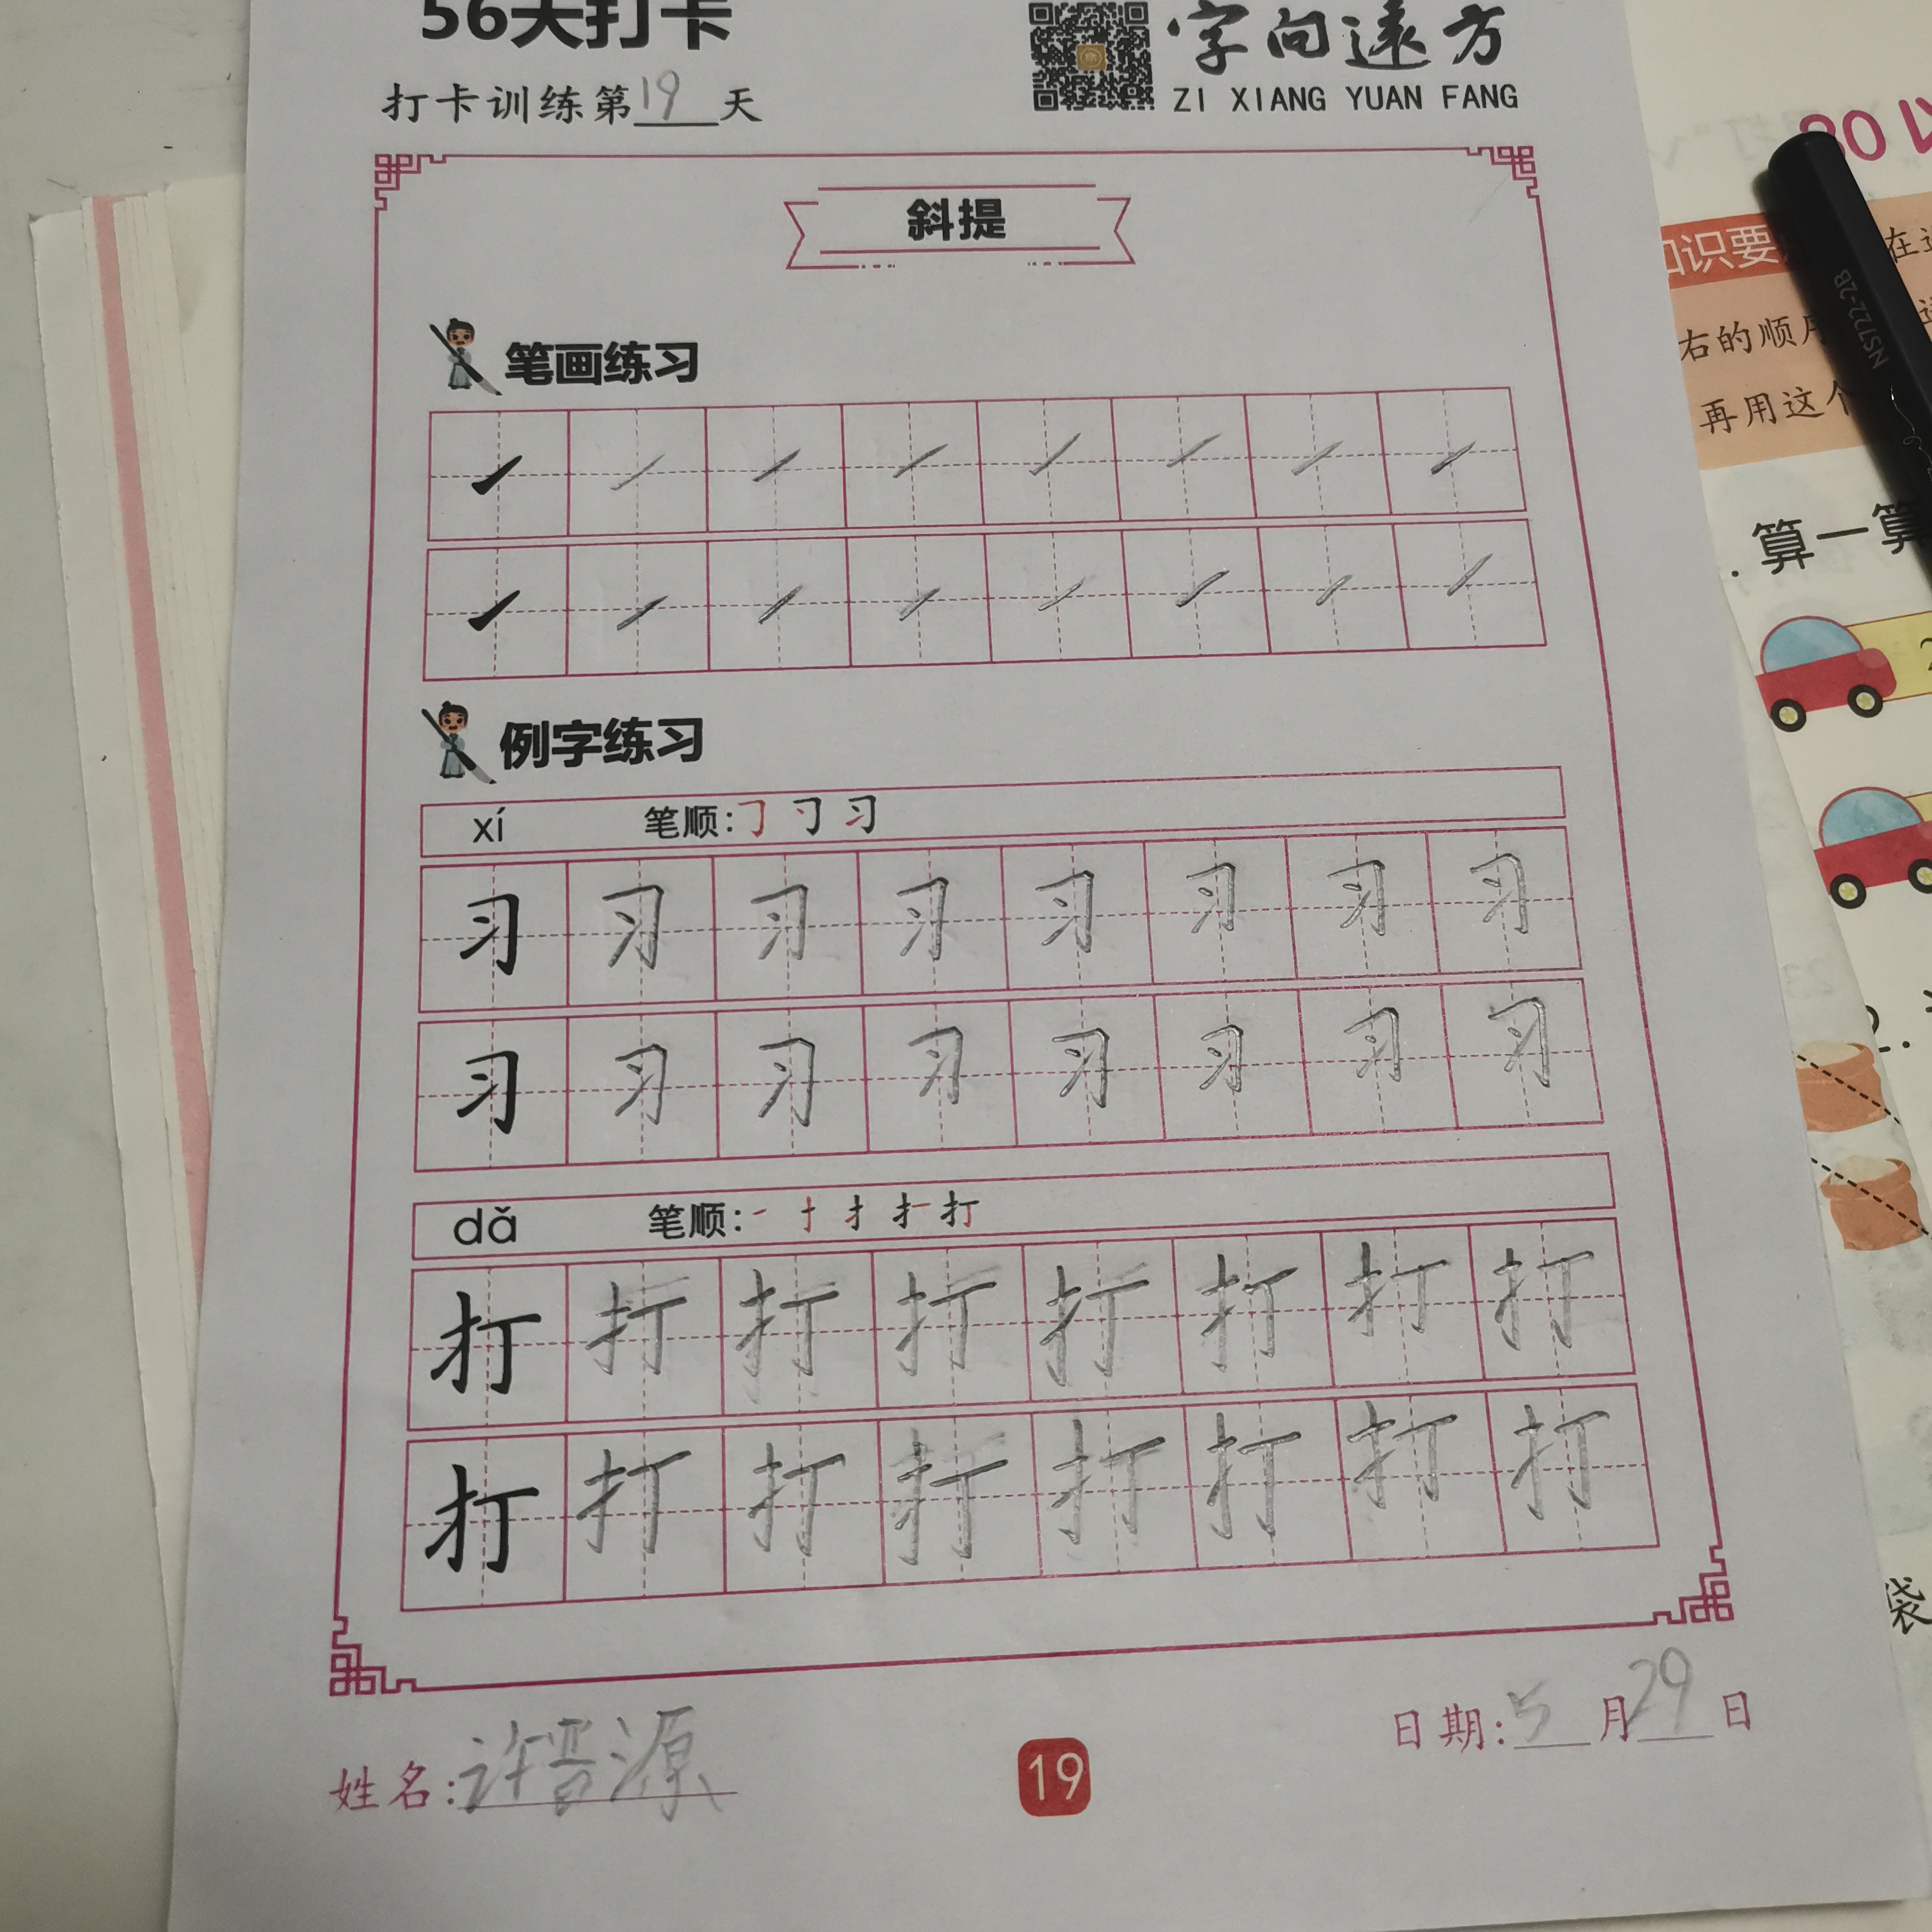 56天打卡
字向遠方
打卡训练第19天
ZI XIANG YUAN FANG
斜提
笔画练习
例字练习
xí 笔顺:㇆ 刁 习
习 习 习 习 习 习 习 习
习 习 习 习 习 习 习 习
dǎ 笔顺:一 十 扌 扌一 打
打 打 打 打 打 打 打 打
打 打 打 打 打 打 打 打
姓名:许晋源
19
日期:5月29日
80 以
知识要
在
右的顺序
再用这个
NS722-2B
. 算一算
2
2.
袋